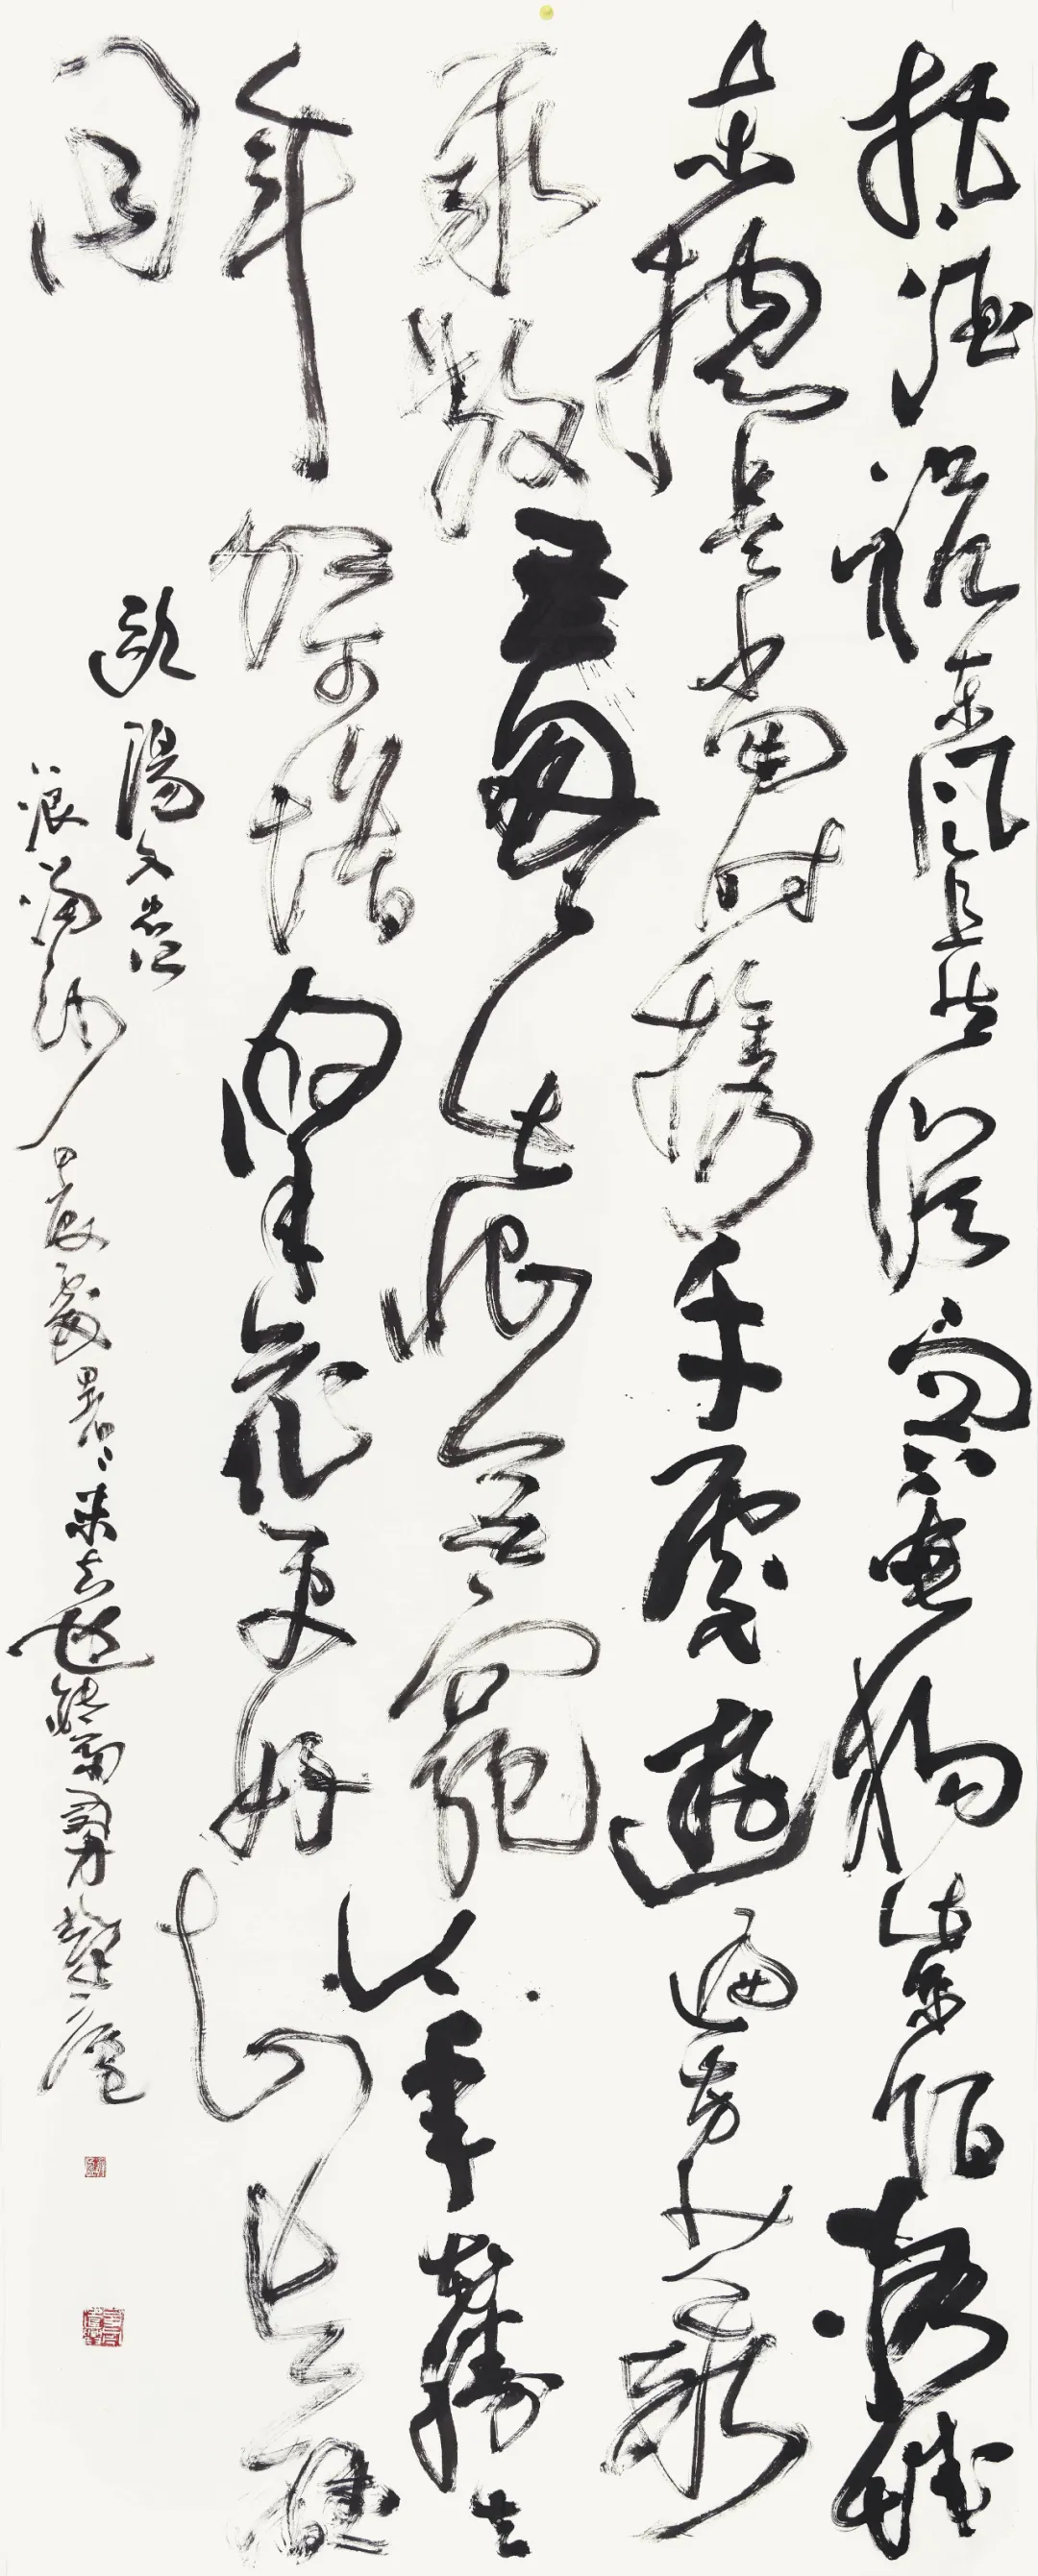 把酒祝東風且共從容垂楊紫陌洛城
東總是當時攜手處遊遍芳叢
聚散苦匆匆此恨無窮今年花勝去
年紅可惜明年花更好知與誰
同
歐陽文忠公
浪淘沙甲辰處暑